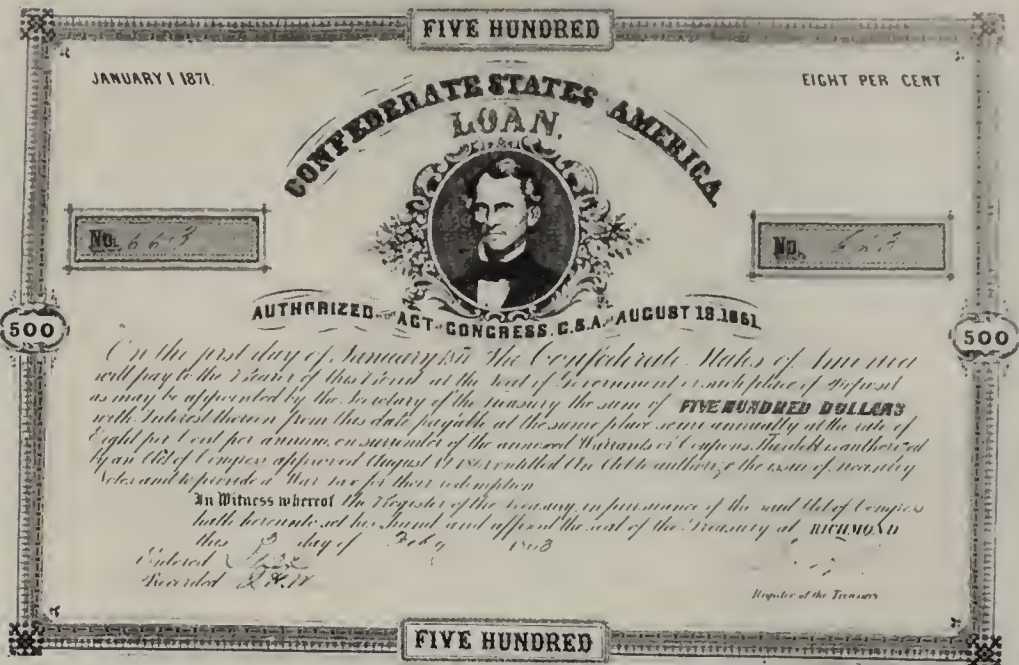 FIVE HUNDRED
JANUARY 1 1871.
EIGHT PER CENT
CONFEDERATE STATES AMERICA
LOAN.
No. 663
No. 663
AUTHORIZED ACT CONGRESS. C.S.A. AUGUST 19.1861
500
500
On the first day of January The Confederate States of America
will pay to the Bearer of this Bond at the seat of Government or such place of deposit
as may be appointed by the Secretary of the Treasury the sum of FIVE HUNDRED DOLLARS
with Interest thereon from this date payable at the same place semi annually at the rate of
Eight per Cent per annum, on surrender of the annexed Warrants or Coupons. This debt is authorized
by an Act of Congress approved August 19 entitled An Act to authorize the issue of Treasury
Notes and to provide a War tax for their redemption
In Witness whereof the Register of the Treasury, in pursuance of the said Act of Congress
hath hereunto set his Hand and affixed the seal of the Treasury at RICHMOND
this day of Feby 1863
Entered
Recorded
Register of the Treasury
FIVE HUNDRED